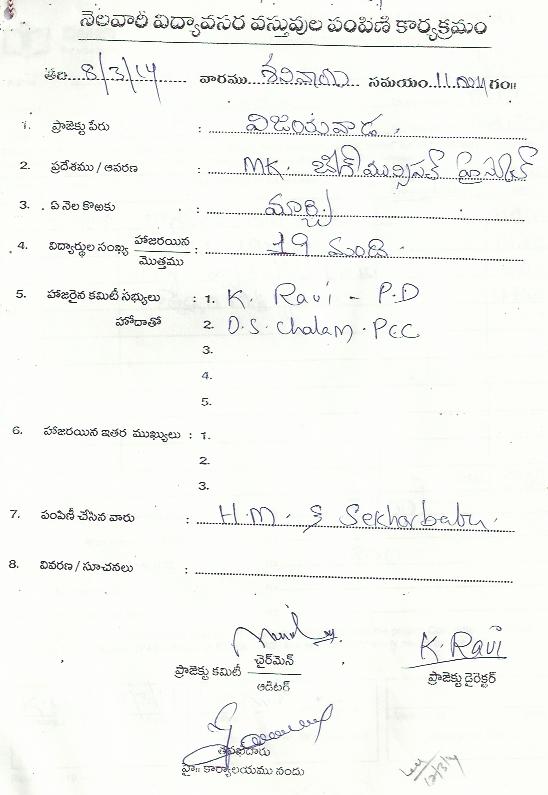 నెలవారీ విద్యావసర వస్తువుల పంపిణీ కార్యక్రమం
తేది. 8/3/14 వారము. శనివారం సమయం. 11.00 గం॥
1. ప్రాజెక్టు పేరు : విజయవాడ.
2. ప్రదేశము / ఆవరణ : MK. బేగ్ మున్సిపల్ హైస్కూల్
3. ఏ నెల కొఱకు : మార్చి
4. విద్యార్థుల సంఖ్య హాజరయిన / మొత్తము : 19 మంది.
5. హాజరైన కమిటీ సభ్యులు : 1. K. Ravi - P.D
హోదాతో 2. D.S. Chalam. PCC
3.
4.
5.
6. హాజరయిన ఇతర ముఖ్యులు : 1.
2.
3.
7. పంపిణీ చేసిన వారు : H.M. S Sekharbabu.
8. వివరణ / సూచనలు :
ప్రాజెక్టు కమిటీ చైర్మెన్ / ఆడిటర్
K. Ravi
ప్రాజెక్టు డైరెక్టర్
తనిఖీదారు
హై॥ కార్యాలయము నందు
12/3/14